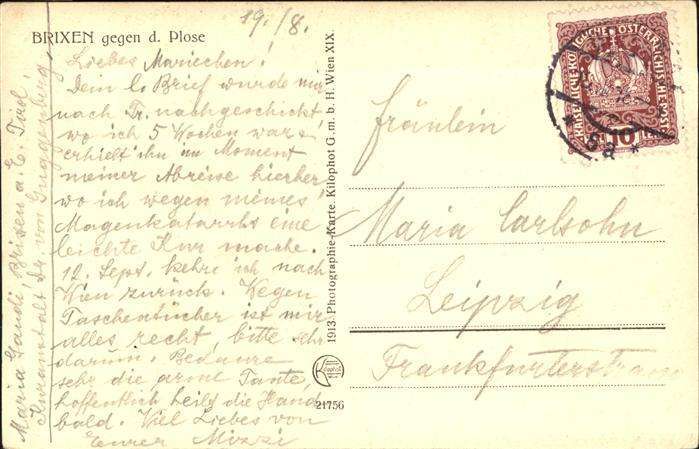 19./8.
BRIXEN gegen d. Plose
Liebes Mariechen!
Dein l. Brief wurde mir
nach Tr. nachgeschickt,
wo ich 5 Wochen war u.
erhielt ihn im Moment
meiner Abreise hierher,
wo ich wegen meines
Magenkatarrhs eine
leichte Kur mache.
12. Sept. kehre ich nach
Wien zurück. Wegen
Taschentücher ist mir
alles recht, bitte sehr
darum. Bedaure
sehr die arme Tante,
hoffentlich heilt die Hand
bald. Viel Liebes von
Eurer Mizzi
Maria Gandi, Brixen a. E. Tirol,
Kuranstalt Dr. von Guggenberg
1913. Photographie-Karte. Kilophot G. m. b. H. Wien XIX.
21756
KAISERLICHE KÖNIGLICHE ÖSTERREICHISCHE POST
10
5a
Fräulein
Maria Carlsohn
Leipzig
Frankfurterstrasse